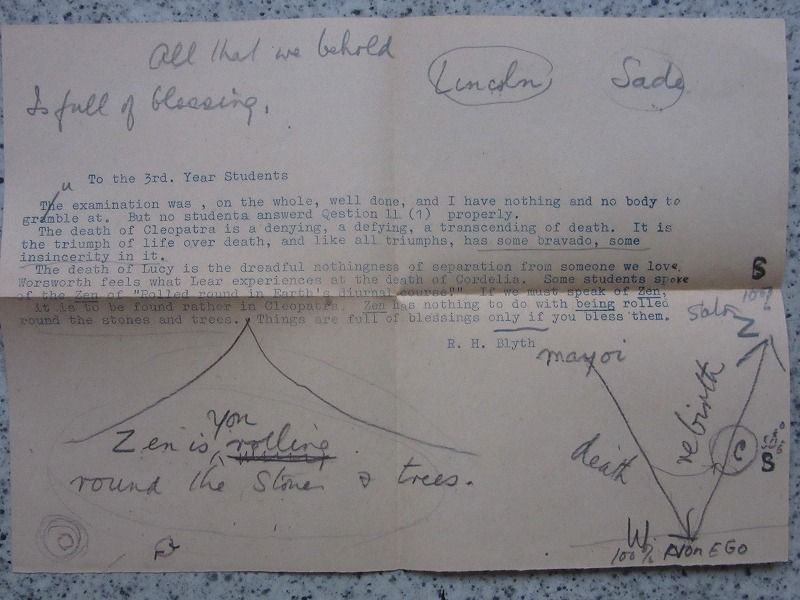 All that we behold
Is full of blessing.
Lincoln Sade
u
To the 3rd. Year Students
The examination was , on the whole, well done, and I have nothing and no body to
gramble at. But no students answerd Qestion 11 (1) properly.
The death of Cleopatra is a denying, a defying, a transcending of death. It is
the triumph of life over death, and like all triumphs, has some bravado, some
insincerity in it.
The death of Lucy is the dreadful nothingness of separation from someone we love.
Worsworth feels what Lear experiences at the death of Cordelia. Some students spoke
of the Zen of "Rolled round in Earth's diurnal course"". If we must speak of Zen,
it is to be found rather in Cleopatra. Zen has nothing to do with being rolled
round the stones and trees. Things are full of blessings only if you bless them.
R. H. Blyth
S
100%
Z
mayoi
death
rebirth
C
S
W
100% Non EGO
you
Zen is rolling
round the stones & trees.